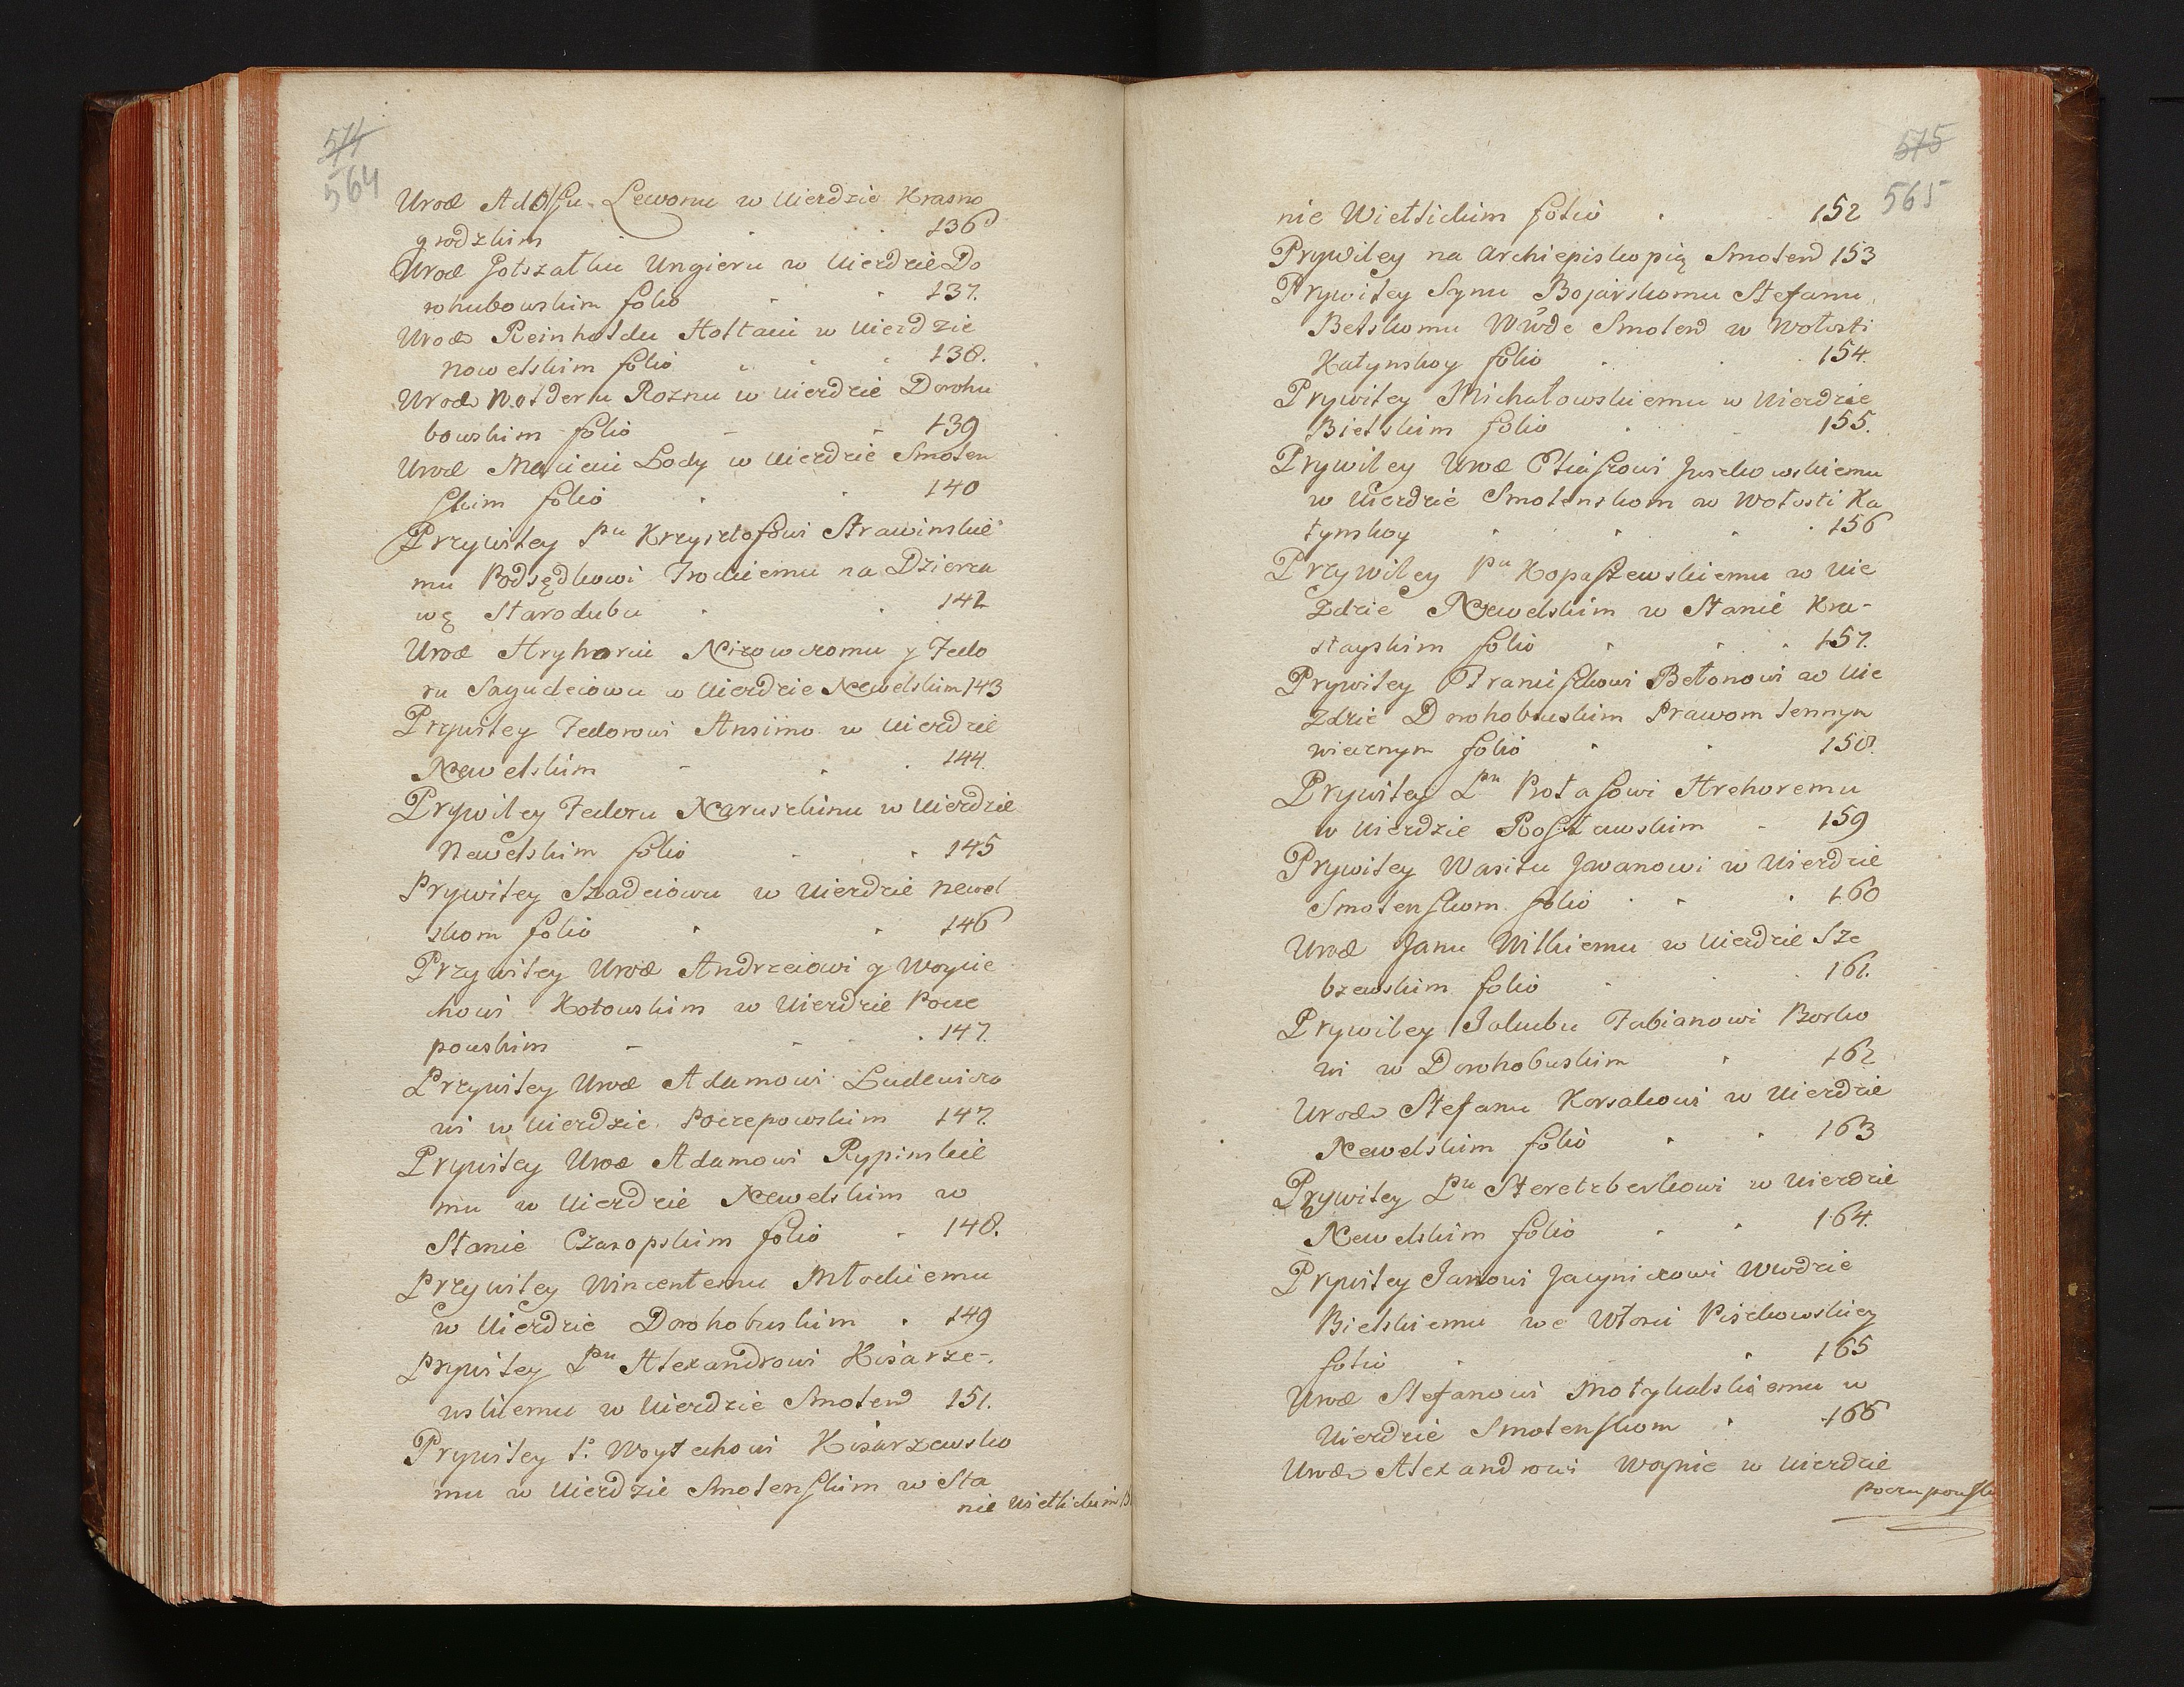 574
564
Urod Adolfu Lewonu w Uierdzie Krasno
grodzkim 136
Urod Gotszalku Ungieru w Uierdzie Do
rohubowskim folio 137.
Urod Reinholdu Holtaui w Uierdzie
nowelskim folio 138.
Urod Wolderu Roznu w Uierdzie Dorohu
bowskim folio 139
Urod Macieiu Lody w Uierdzie Smolen
skim folio 140
Przywiley Pnu Krzysztofowi Strawinskie
mu Podsędkowi Trockiemu na Dzierza
wę Starodubu 142
Urod Hryhoriu Nizowczomu y Fedo
ru Sagudciowu w Uierdzie Newelskim 143
Przywiley Fedorowi Ansimo w Uierdzie
Newelskim 144.
Prywiley Fedoru Naruszkinu w Uierdzie
Newelskim folio 145
Prywiley Szadciowu w Uierdzie newel
skom folio 146
Przywiley Urod Andrzeiowi y Woycie
chowi Kotowskim w Uierdzie Pocze
powskim 147.
Przywiley Urod Adamowi Ludewiczo
wi w Uierdzie Poczepowskim 147.
Prywiley Urod Adamowi Rypinskie
mu w Uierdzie Newelskim w
Stanie Czaropskim folio 148.
Przywiley Wincentemu Młockiemu
w Uierdzie Dorohobuskim 149
Prywiley Pnu Alexandrowi Kisarze-
wskiemu w Uierdzie Smolen 151.
Prywiley P. Woytechowi Kisarzewsko
mu w Uierdzie Smolenskim w Sta
nie Wietlickim
575
565
nie Wietlickim folio 152
Prywiley na Archiepiskopią Smolen 153
Prywiley Synu Bojarskomu Stefanu
Belskomu Wwde Smolen w Wołosti
Katynskoy folio 154.
Prywiley Michałowskiemu w Uierdzie
Bielskim folio 155.
Prywiley Urod Eliaszowi Juszkowskiemu
w Uierdzie Smolenskom w Wołosti Ka
tynskoy 156
Przywiley Pnu Kopaszewskiemu w Uie
zdzie Newelskim w Stanie Kra-
stayskim folio 157.
Prywiley Franciszkowi Bełonowi w Uie
zdzie Dorohobuskim Prawom lennym
wiecznym folio 158.
Prywiley Pnu Protasowi Hrehoremu
w Uierdzie Rosławskim 159
Prywiley Wasilu Jwanowi w Uierdzie
Smolenskom folio 160
Urod Janu Wilkiemu w Uierdzie Sze
bzewskim folio 161.
Prywiley Jakubu Fabianowi Borko
wi w Dorohobuskim 162
Urod Stefanu Korsakowi w Uierdzie
Newelskim folio 163
Prywiley Pu Steretzberkowi w Uierdzie
Newelskim folio 164.
Prywiley Janowi Jacyniczowi Wwdzie
Bielskiemu we Włosci Pieskowskiey
folio 165
Urod Stefanowi Motykalskiemu w
Uierdzie Smolenskom 166
Urod Alexandrowi Woynie w Uierdzie
Poczupowsk